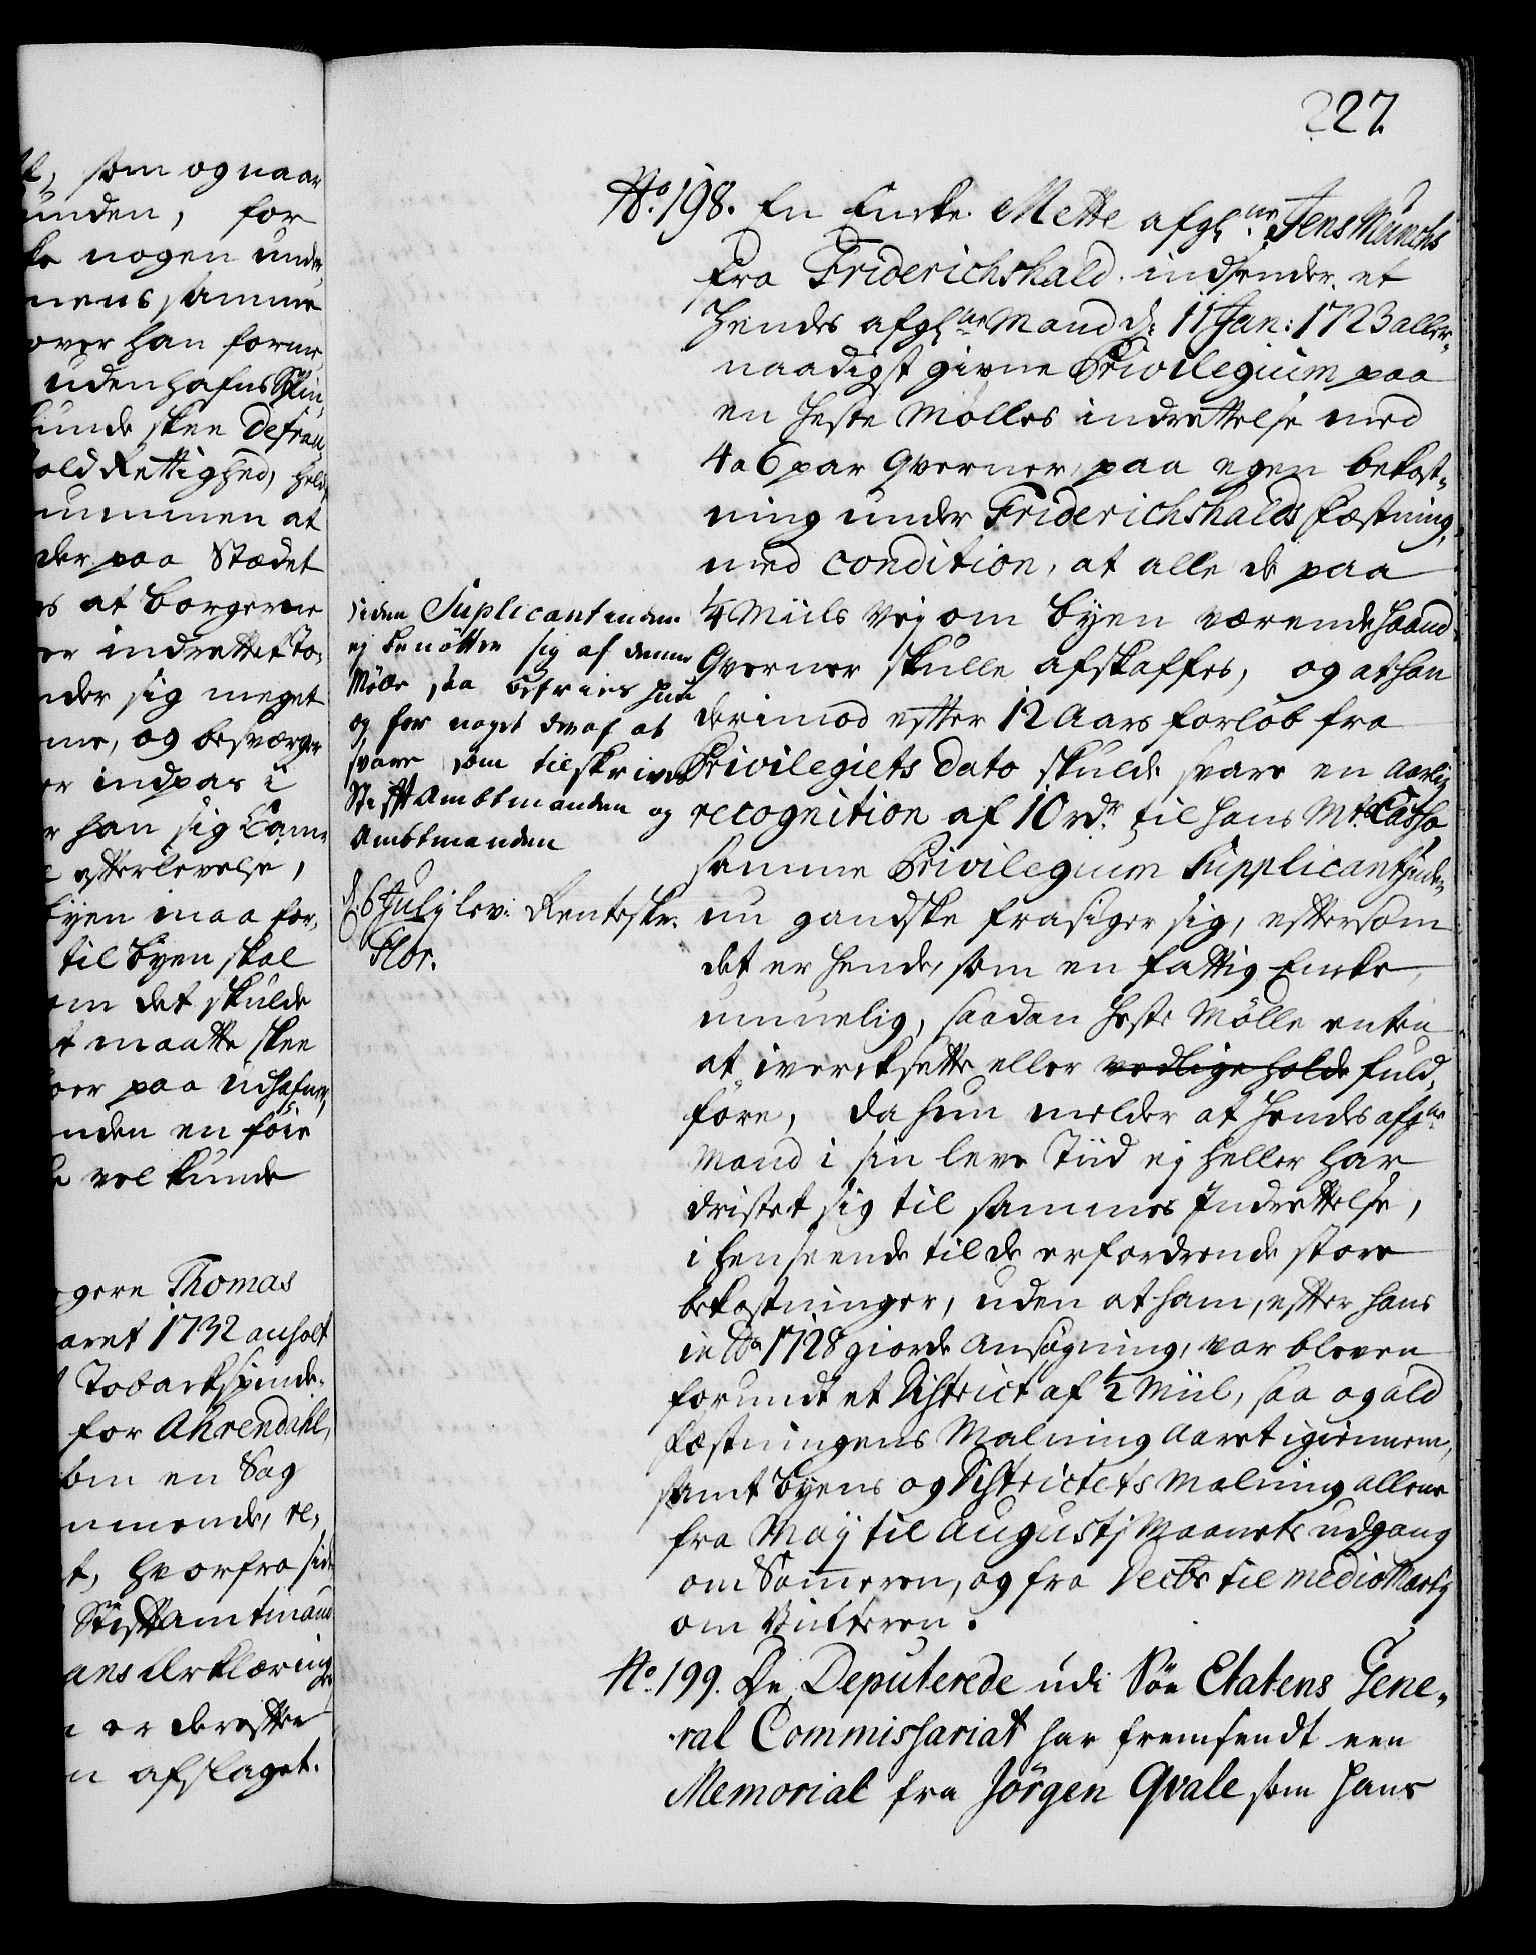 227.
k, som og naar
unden, for
nogen unde
nens samme
over han forme
udenhafns Skin
kunde skee Defrau,
old Rettighed, hels
ummen at
der paa Stædet
s at borgerne
er indrettet To,
nder sig meget
me, og besværge
er indpas i
r han sig Cam
efterlevelse,
byen maa for,
til byen skal
om det skulde
t maatte skee
oer paa Udhafner,
nden en föie
vel kunde
gere Thomas
aaret 1732 anholt
Tobackspinde,
for Ahrendahl,
om en Sag
nmende, re,
t, hvorfra sid
Stiftamtmand
ans Erklæring
er derefter
n afslaget.
No. 198. En Encke Mette afgl. Jens Munchs
fra Friderichshald indsender et
hendes afgl. Mand d: 11 Jan: 1723 aller,
naadigst givne Privilegium paa
en heste Mølles indrettelse med
4 a 6 par Qverner, paa egen bekost,
ning under Friderichshalds Fæstning,
med condition, at alle de paa
1/4 Miils Vej om byen værende Haand
Qverner skulle afskaffes, og at han
derimod efter 12 Aars forløb fra
Privilegiets Dato skulde svare en Aarlig
recognition af 10 rdr. til Hans Mts. Cassa
samme Privilegium Supplicantinden
nu gandske frasiger sig, eftersom
det er hende, som en fattig Encke,
umuelig, saadan heste Mølle enten
at iverksette eller vedlige holde fuld,
føre, da hun melder at hendes afgl.
Mand i sin leve Tiid ej heller har
dristet sig til sammes Indrettelse,
i henseende til de erfordrende store
bekostninger, uden at ham, efter hans
in Ao 1728 giorde Ansøgning, var bleven
forundt et District af 1/2 Miil, saa og ald
Fæstningens Malning Aaret igiennem,
samt byens og Districtets Malning allene
fra Maij til Augustj Maanets udgang
om Sommeren, og fra Decbr. til medio Martij
om Vinteren.
siden Suplicantinden
ej benötter sig af denne
Mölle saa befries hun
og for noget deraf at
svare som tilskrives
Stiftambtmanden og
Ambtmanden
d: 6 Julij lev: Renteskr.
Flor.
No. 199. De Deputerede udi Söe Etatens Gene,
ral Commissariat har fremsendt een
Memorial fra Jörgen Qvale som hans